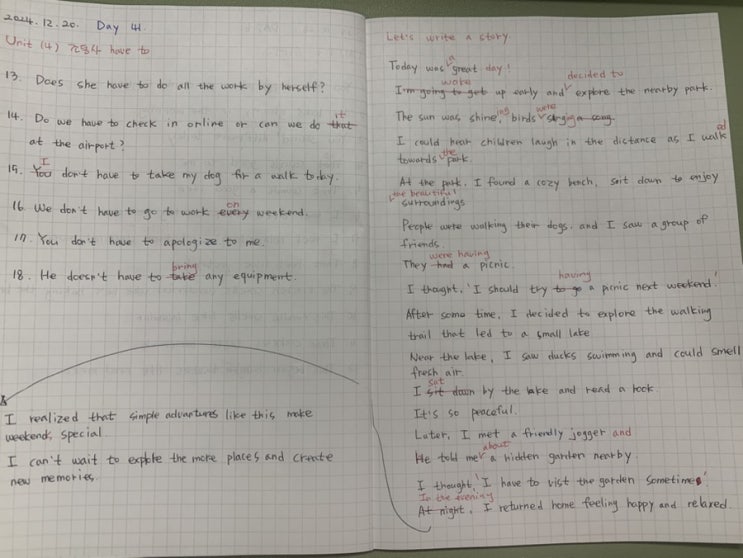 2024.12.20. Day 41.
Unit (4) 조동사 have to
13. Does she have to do all the work by herself?
14. Do we have to check in online or can we do that it
at the airport?
15. You I don't have to take my dog for a walk today.
16. We don't have to go to work every on weekend.
17. You don't have to apologize to me.
18. He doesn't have to take bring any equipment.
I realized that simple advantures like this make
weekends special.
I can't wait to explore the more places and create
new memories.
Let's write a story.
Today was a great day!
I'm going to get wake up early and decided to explore the nearby park.
The sun was shine ing, birds were singing a song.
I could hear children laugh in the dictance as I walk ed
towards the park.
At the park, I found a cozy bench, sit down to enjoy
the beautiful surroundings
People were walking their dogs, and I saw a group of
friends.
They had were having a picnic.
I thaught, 'I should try to go having a picnic next weekend.'
After some time, I decided to explore the walking
trail that led to a small lake
Near the lake, I saw ducks swimming and could smell
fresh air
I sit down sat by the lake and read a book.
It's so peaceful.
Later, I met a friendly jogger and
He told me about a hidden garden nearby.
I thought, 'I have to vist the garden sometime'
At night In the evening, I returned home feeling happy and relaxed.